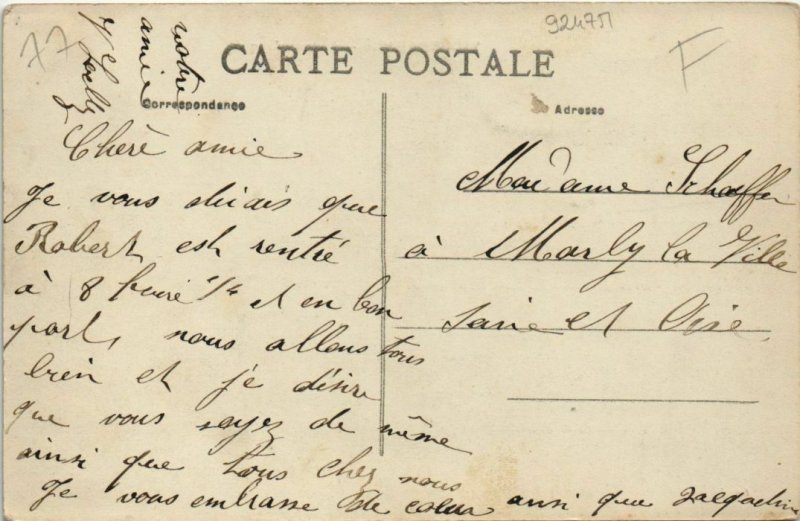 924751
77
F
CARTE POSTALE
Correspondance
Adresse
Chère amie
Je vous dirais que
Robert est rentré
à 8 heure 1/4 et en bon
port, nous allons tous
bien et je désire
que vous soyez de même
ainsi que tous chez nous
Je vous embrasse de cœur ainsi que Jacqueline
votre
amie
Madame Schaffer
à Marly la Ville
Seine et Oise